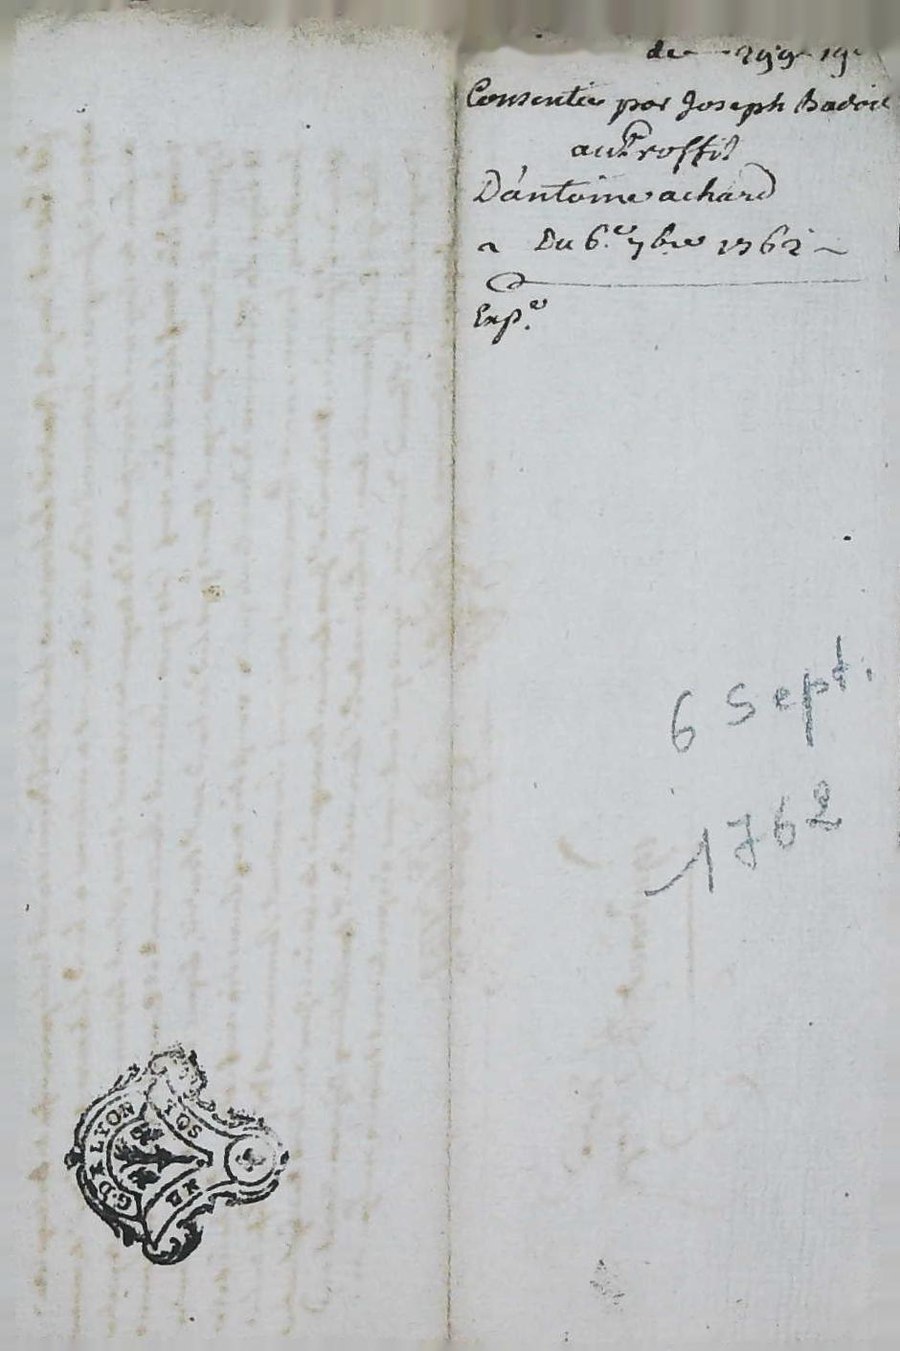 de 299 19
Consentie par Joseph Badoil
au Proffit
D'antoine achard
a Du 6.e 7bre 1762
Exp.e
6 Sept.
1762
G. DE LYON
SOLS